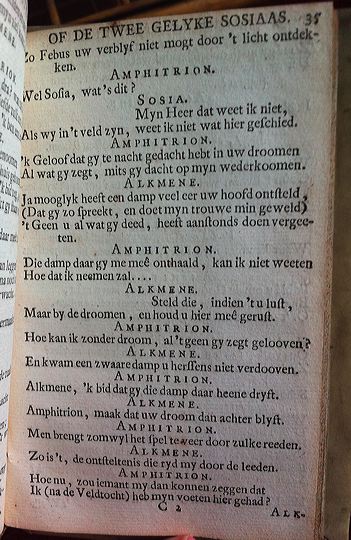 OF DE TWEE GELYKE SOSIAAS. 35
Zo Febus uw verblyf niet mogt door 't licht ontdek-
ken.
AMPHITRION.
Wel Sosia, wat's dit?
SOSIA.
Myn Heer dat weet ik niet,
Als wy in't veld zyn, weet ik niet wat hier geschied.
AMPHITRION.
'k Geloof dat gy te nacht gedacht hebt in uw droomen
Al wat gy zegt, mits gy dacht op myn wederkoomen.
ALKMENE.
Ja mooglyk heeft een damp veel eer uw hoofd ontsteld,
(Dat gy zo spreekt, en doet myn trouwe min geweld)
't Geen u al wat gy deed, heeft aanstonds doen vergee-
ten.
AMPHITRION.
Die damp daar gy me meê onthaald, kan ik niet weeten
Hoe dat ik neemen zal....
ALKMENE.
Steld die, indien 't u lust,
Maar by de droomen, en houd u hier meê gerust.
AMPHITRION.
Hoe kan ik zonder droom, al 't geen gy zegt gelooven?
ALKMENE.
En kwam een zwaare damp u herssens niet verdooven.
AMPHITRION.
Alkmene, 'k bid dat gy die damp daar heene dryft.
ALKMENE.
Amphitrion, maak dat uw droom dan achter blyft.
AMPHITRION.
Men brengt zomwyl het spel te veer door zulke reeden.
ALKMENE.
Zo is't, de ontsteltenis die ryd my door de leeden.
AMPHITRION.
Hoe nu, zou iemant my dan konnen zeggen dat
Ik (na de Veldtocht) heb myn voeten hier gehad?
C 2 ALK-